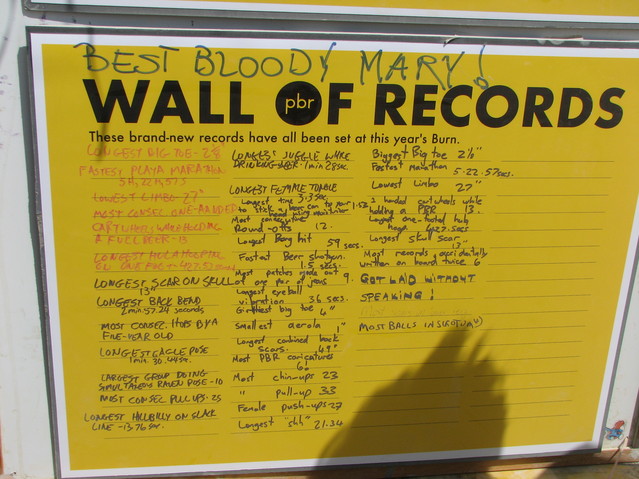 BEST BLOODY MARY!
WALL pbr OF RECORDS
These brand-new records have all been set at this year's Burn.
LONGEST BIG TOE - 2
FASTEST PLAYA MARATHON
5H, 22M, 57S
LOWEST LIMBO 27"
MOST CONSEC ONE-HANDED
CARTWHEELS WHILE HOLDING
A FULL BEER - 13
LONGEST HULA HOOPING
ON ONE
LONGEST SCAR ON SKULL
13"
LONGEST BACK BEND
2min: 57.24 seconds
MOST CONSEC. HOPS BY A
FIVE-YEAR OLD
LONGEST EAGLE POSE
1min. 30.44
LARGEST GROUP DOING
SIMULTANEOUS RAVEN POSE - 10
MOST CONSEC PULL UPS - 25
LONGEST HILLBILLY ON SLACK
LINE - 13.76 sec.
LONGEST JUGGLE WHILE
DRINKING BEER 1min 28sec.
LONGEST FEMALE TONGUE
Longest time 3.3sec
to stick a beer can to your
head using
Most consecutive
Round-offs 12.
Longest Bong hit 59 secs.
Fastest Beer shotgun.
1.5 secs.
Most patches made out
of one pair of jeans 9.
Longest eyeball
vibration 36 secs.
Girthiest big toe 4"
Smallest areola 1"
Longest combined back
scars. 49"
Most PBR caricatures
61
Most chin-ups 23
" pull-up 33
Female push-ups 27
Longest "shh" 21.34
Biggest Big Toe 2½"
Fastest Marathon
5.22.57secs.
Lowest Limbo 27"
handed cartwheels while
holding a PBR 13.
Longest one-footed hula
hoop
Longest skull scar
13"
Most records accidentally
written on board twice 6
GOT LAID WITHOUT
SPEAKING!
MOST BALLS IN SCROTUM